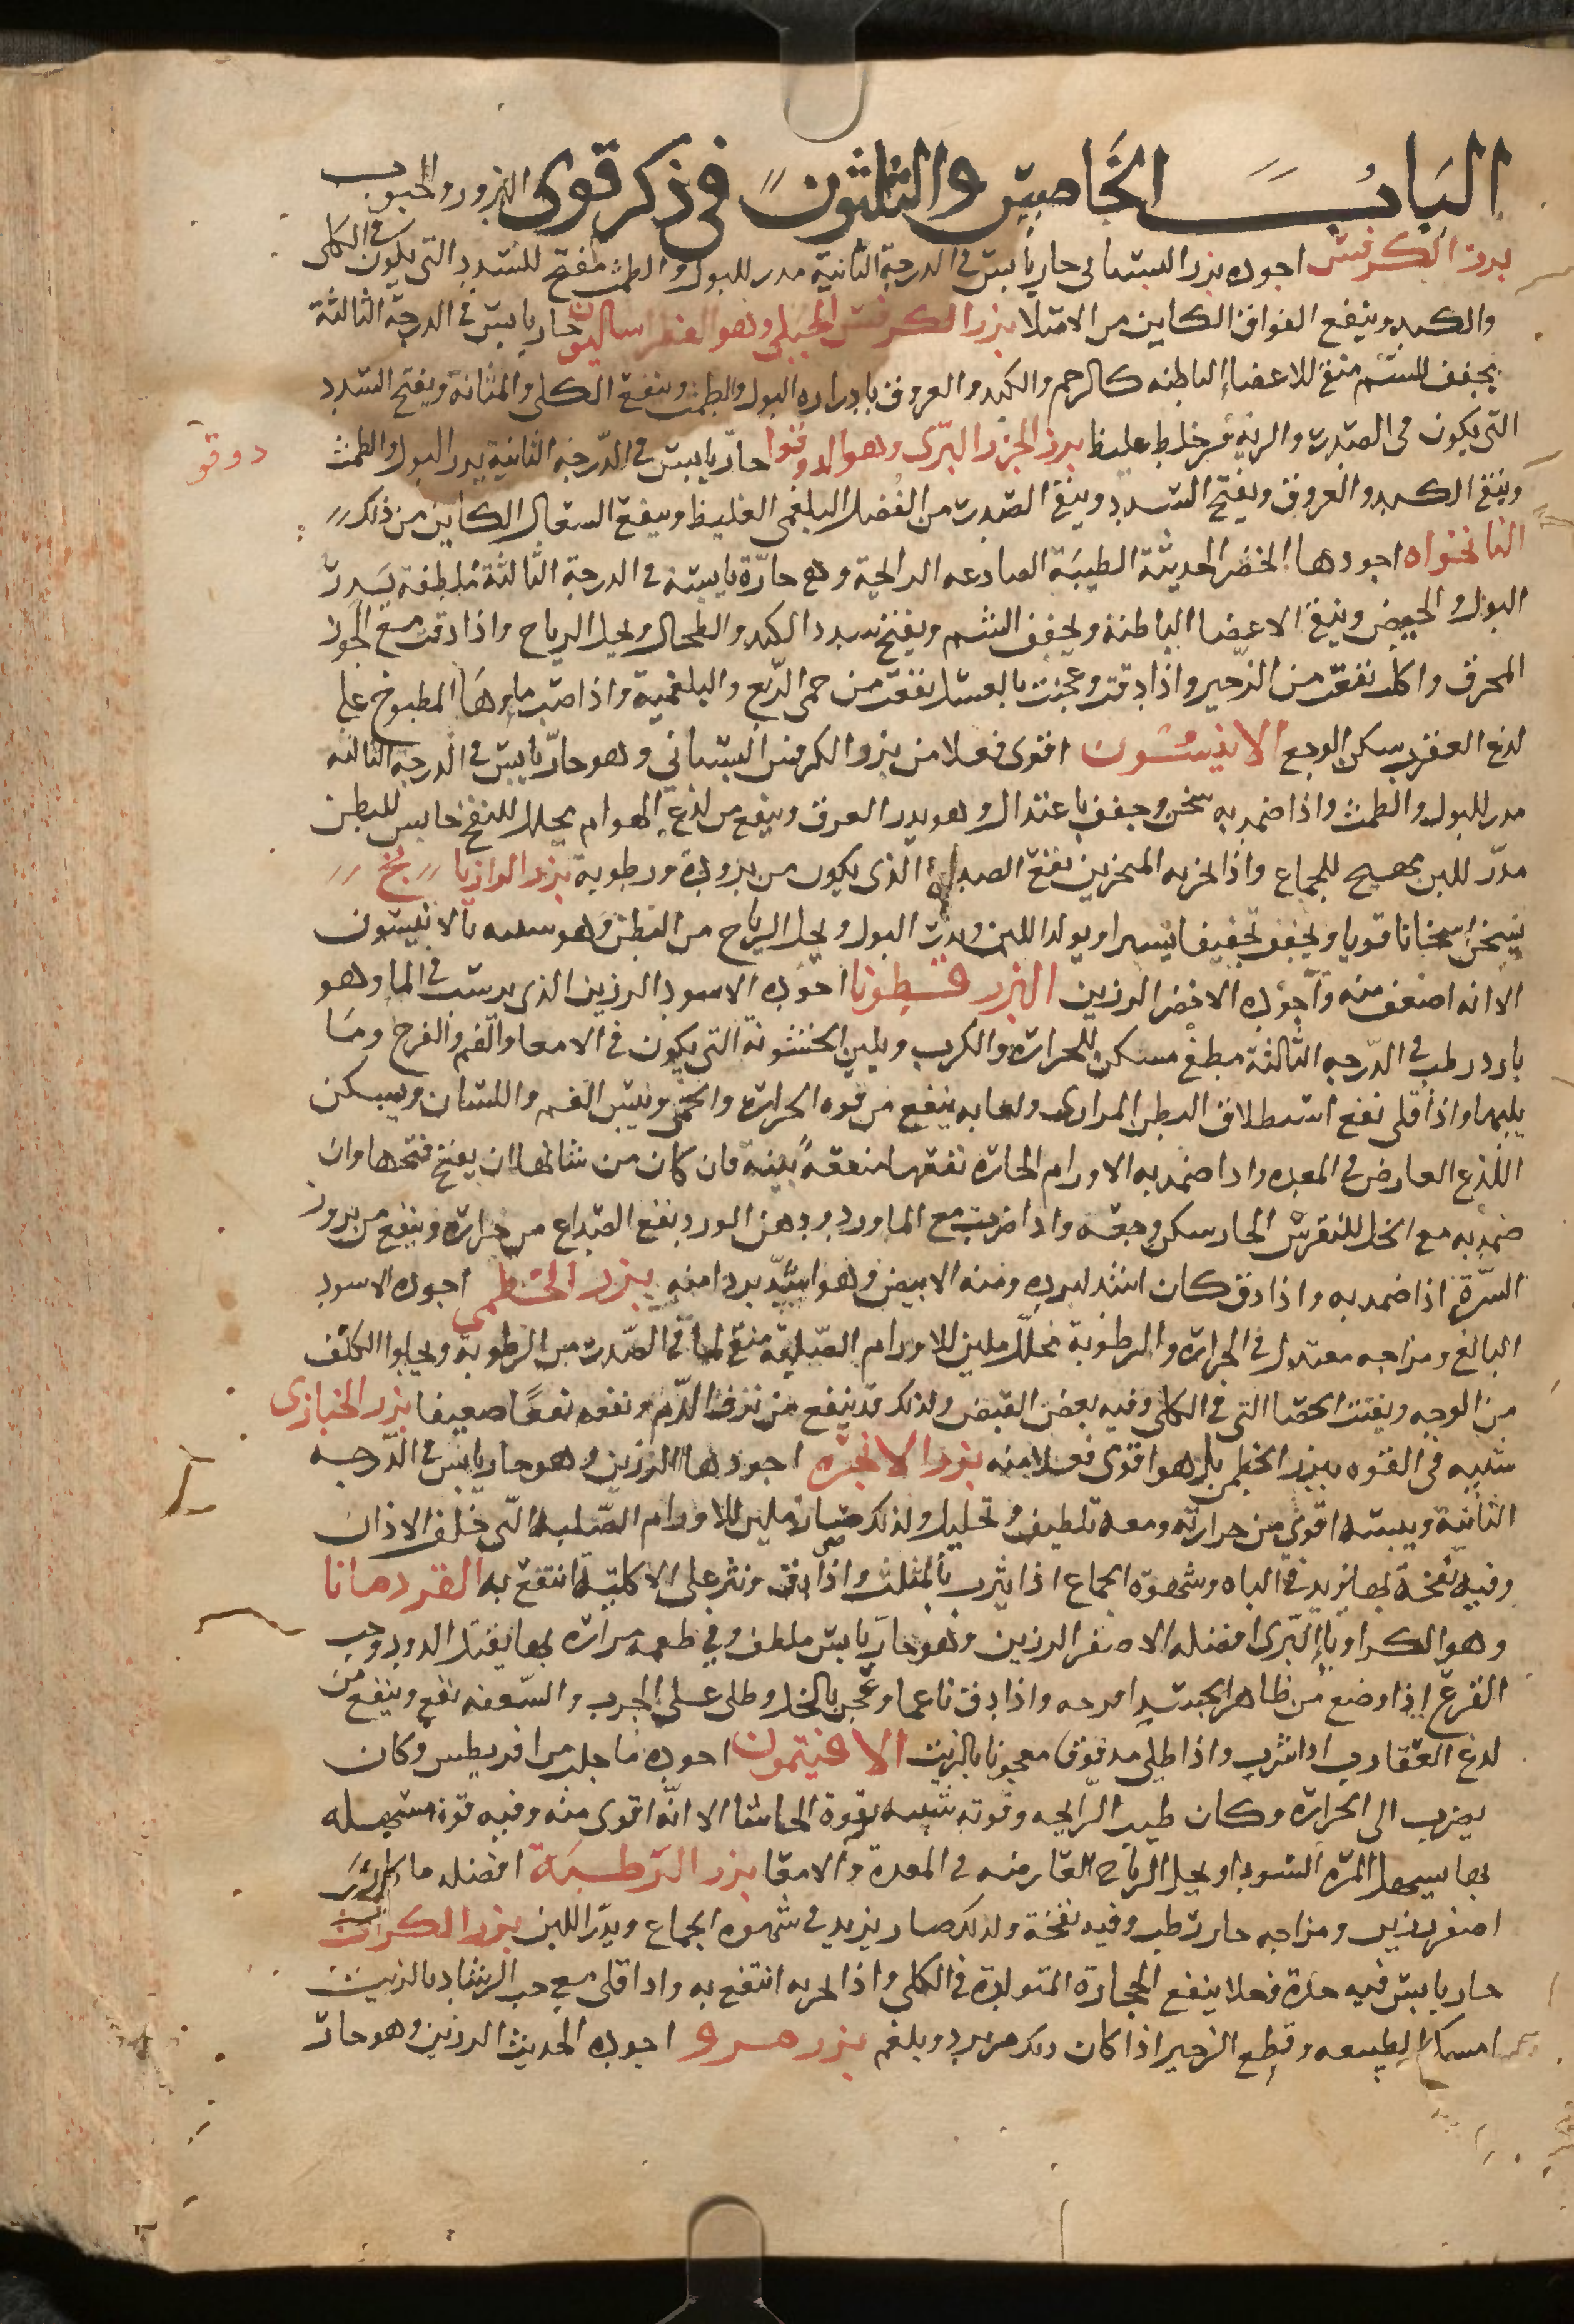 الباب الخامس والثلثون في ذكر قوى البزور والحبوب
بزر الكرفس اجوده بزر البستاني حار يابس في الدرجة الثانية مدر للبول والطمث مفتح للسدد التي يكون في الكلى
والكبد وينفع الفواق الكاين من الامتلا بزر الكرفس الجبلي وهو الفطراساليون حار يابس في الدرجة الثالثة
يجفف للسم منقي للاعضاء الباطنه كالرحم والكبد والعروق بادراره البول والطمث وينفع الكلى والمثانة ويفتح السدد
التي يكون في الصدر والرية من خلط غليظ بزر الجزر البرى وهو الدوقوا حار يابس في الدرجة الثانية يدر البول والطمث
دوقو
وينقي الكبد والعروق ويفتح السدد وينقي الصدر من الفضل البلغمي الغليظ وينفع السعال الكاين من ذلك
النانخواه اجودها الخضر الحديثة الطيبة الصادعه الرايحة وهي حارة يابسة في الدرجة الثالثة ملطفة يدر
البول والحيض وينقي الاعضا الباطنة ويجفف السم ويفتح سدد الكبد والطحال ويحل الرياح واذا دقت مع الجوز
المحرق واكلت نفعت من الزحير واذا دقت وعجنت بالعسل نفعت من حمى الربع والبلغمية واذا صب ماوها المطبوخ على
لدغ العقرب سكن الوجع الانيسون اقوى فعلا من بزر الكرفس البستاني وهو حار يابس في الدرجة الثالثه
مدر للبول والطمث واذا ضمد به سخن وجفف باعتدال وهو يدر العرق وينفع من لذع الهوام يحلل للنفخ حابس للبطن
مدر للبن مهيج للجماع واذا بخر به المنخرين نفع الصداع الذي يكون من برودة ورطوبة بزر الرازيانج
يسخن اسخانا قويا ويجفف تجفيفا يسيرا ويولد اللبن ويدر البول ويحل الرياح من البطن وهو شبيه بالانيسون
الا انه اضعف منه واجوده الاخضر الرزين البزر قطونا اجوده الاسود الرزين الذي يرسب في الما وهو
بارد رطب في الدرجه الثالثة مطفي مسكن للحرارة والكرب ويلين الخشونة التي يكون في الامعا والفم والفرج وما
يليهما واذا قلي نفع استطلاق البطن المراري ولعابه ينفع من قوه الحرارة والحمى ويبس الفم واللسان ويسكن
اللذع العارض في المعده واذا ضمد به الاورام الحاره نفعها منفعة بينة فان كان من شانها ان يفتح فتحها وان
ضمد به مع الخل للنقرس الحار سكن وجعه واذا ضرب مع الماورد ودهن الورد نفع الصداع من حراره وينفع من بروز
السرة اذا ضمد به واذا دق كان اشد لبرده ومنه الابيض وهو اشد بردا منه بزر الخطمي اجوده الاسود
البالغ ومزاجه معتدل في الحرارة والرطوبة محلل ملين للاورام الصلبة منقي لما في الصدر من الرطوبة ويجلوا الكلف
من الوجه ويفتت الحصا التي في الكلى وفيه بعض القبض ولذلك قد ينفع من نزف الدم ونفعه نفعا ضعيفا بزر الخبازى
شبيه في القوه ببزر الخطمي بل هو اقوى فعلا منه بزر الانجره اجودها الرزين وهو حار يابس في الدرجه
الثانية ويبسه اقوى من حرارته ومعه تلطيف وتحليل ولذلك صار ملين للاورام الصلبه التي خلف الاذان
وفيه نفخة بها يزيد في الباه وشهوة الجماع اذا شرب بالمثلث واذا دق ونثر على الاكلة انتفع به القردمانا
وهو الكراويا البرى افضله الاصفر الرزين وهو حار يابس ملطف وفي طعمه مرارة بها يقتل الدود وحب
القرع اذا وضع من ظاهر الجسد اقرحه واذا دق ناعما وعجن بالخل وطلي على الجرب والسعفه نفع وينفع من
لدغ العقارب اذا شرب واذا طلي مدقوق معجونا بالزيت الافتيمون اجوده ما جلب من اقريطس وكان
يضرب الى الحرارة وكان طيب الرايحه وقوته شبيه بقوة الحاشا الا انه اقوى منه وفيه قوة مسهله
بها يسهل المرة السودا ويحل الرياح العارضه في المعدة والامعا بزر الرطبة افضله ما كان
اصفر رزين ومزاجه حار رطب وفيه نفخة ولذلك صار يزيد في شهوه الجماع ويدر اللبن بزر الكراث
حار يابس فيه حدة فعلا ينفع الحجارة المتولدة في الكلى واذا بخر به انتفع به واذا قلي مع حب الرشاد بالزيت
امسكا الطبيعه وقطع الزحير اذا كان ذلك من برد وبلغم بزر مرو اجوده الحديث الرزين وهو حار